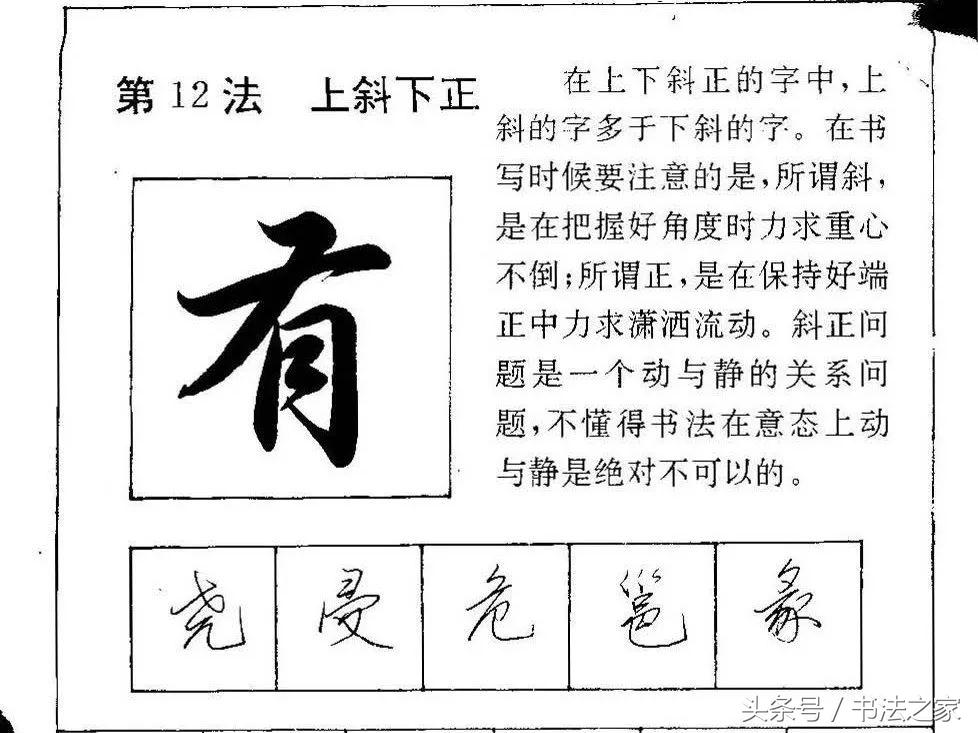 第12法 上斜下正
在上下斜正的字中,上
斜的字多于下斜的字。在书
写时候要注意的是,所谓斜,
是在把握好角度时力求重心
不倒;所谓正,是在保持好端
正中力求潇洒流动。斜正问
题是一个动与静的关系问
题,不懂得书法在意态上动
与静是绝对不可以的。
有
尧 危 邕 彖
头条号/书法之家